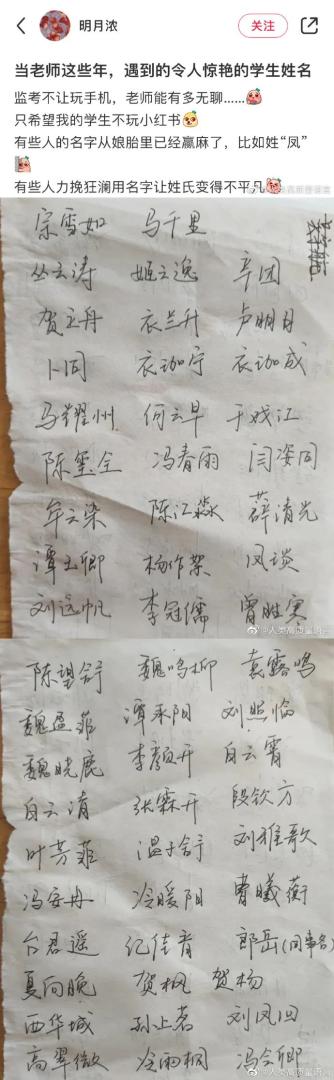 明月浓
关注
当老师这些年，遇到的令人惊艳的学生姓名
监考不让玩手机，老师能有多无聊......
只希望我的学生不玩小红书
有些人的名字从娘胎里已经赢麻了，比如姓“凤”
有些人力挽狂澜用名字让姓氏变得不平凡
宗雪如 马千里
丛云涛 姬云逸 辛团
贺云舟 衣兰升 卢明日
卜同 衣珈宁 衣珈成
马耀州 何云早 于戏江
陈玺全 冯春雨 闫姿同
牟云染 陈江淼 薛清光
谭玉卿 杨作絮 凤琰
刘远帆 李冠儒 曾胜寒
@人类高质量语言
陈望舒 魏鸣柳 袁露鸣
魏盈菲 谭采阳 刘熙临
魏晓鹿 李颜开 白云霄
白云清 张霖开 段钦方
叶芳菲 温于舒 刘雅歌
冯安冉 冷暖阳 曹曦蘅
台君遥 纪佳音 郎岳(同事名)
夏向晚 贺枫 贺杨
西华城 孙上茗 刘凤回
高翠微 冷雨桐 冯令卿